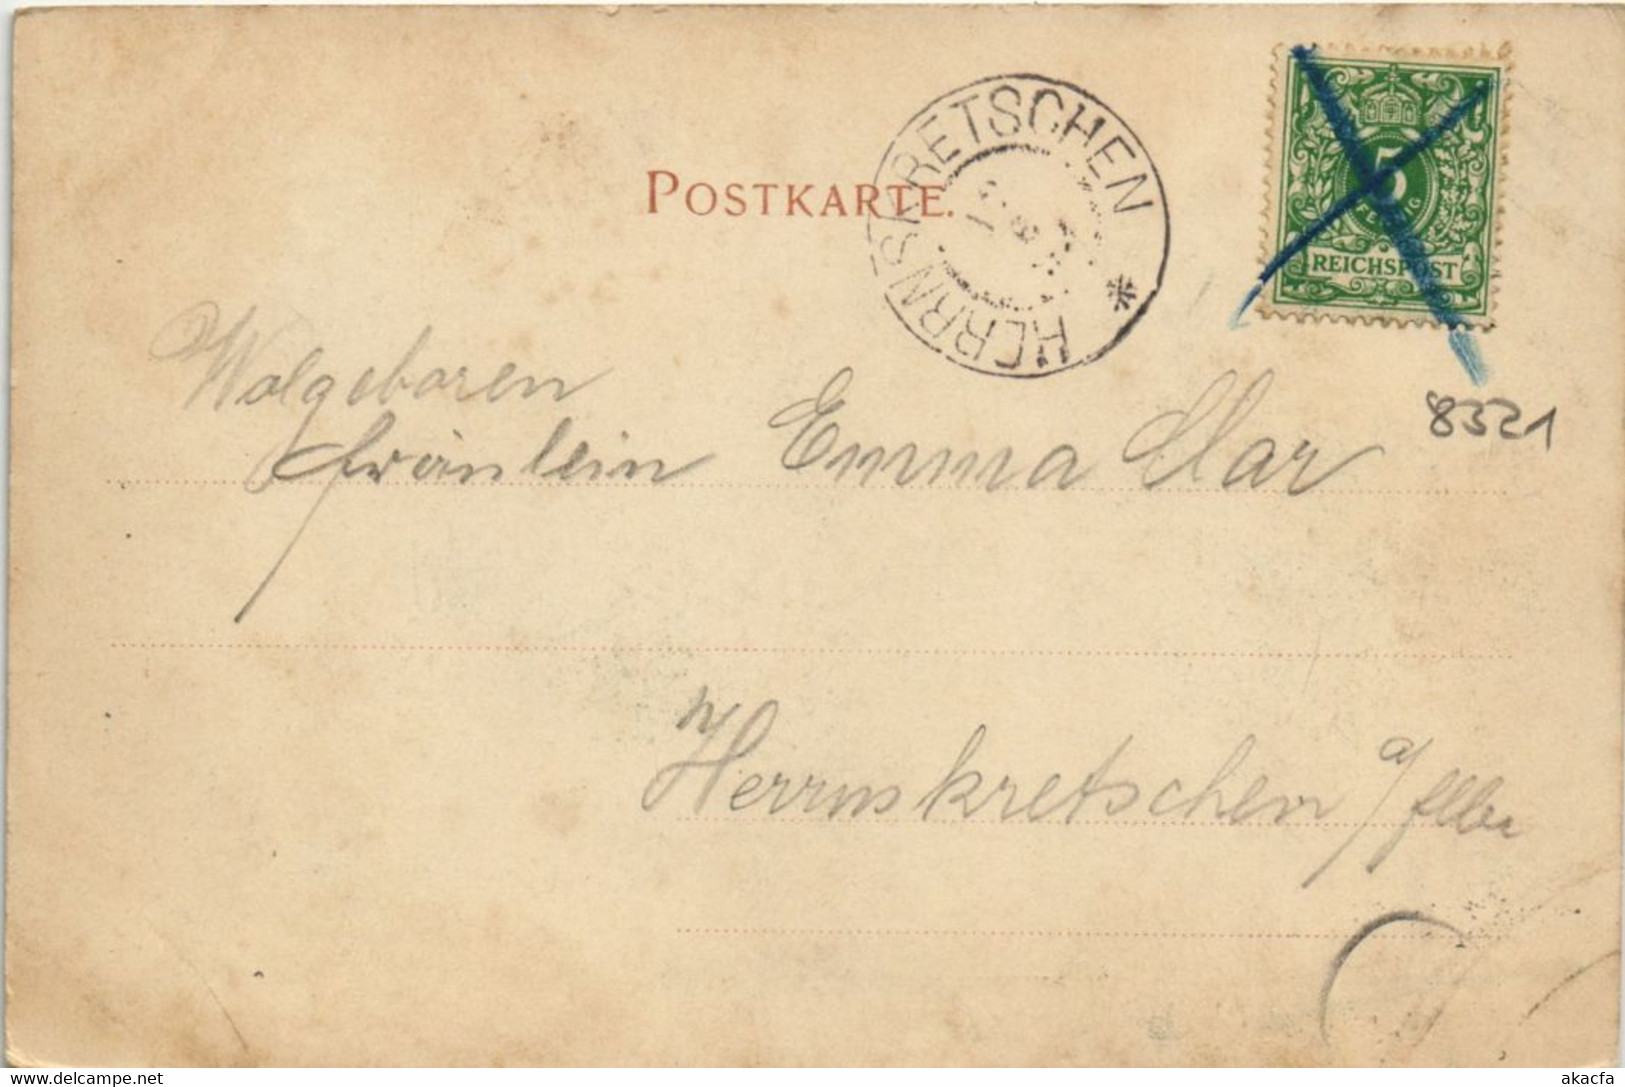 POSTKARTE.
HERRNSKRETSCHEN *
5
PFENNIG
REICHSPOST
8321
Wolgeboren
Fräulein Emma Clar
Herrnskretschen a/ Elbe
akacfa
delcampe.net